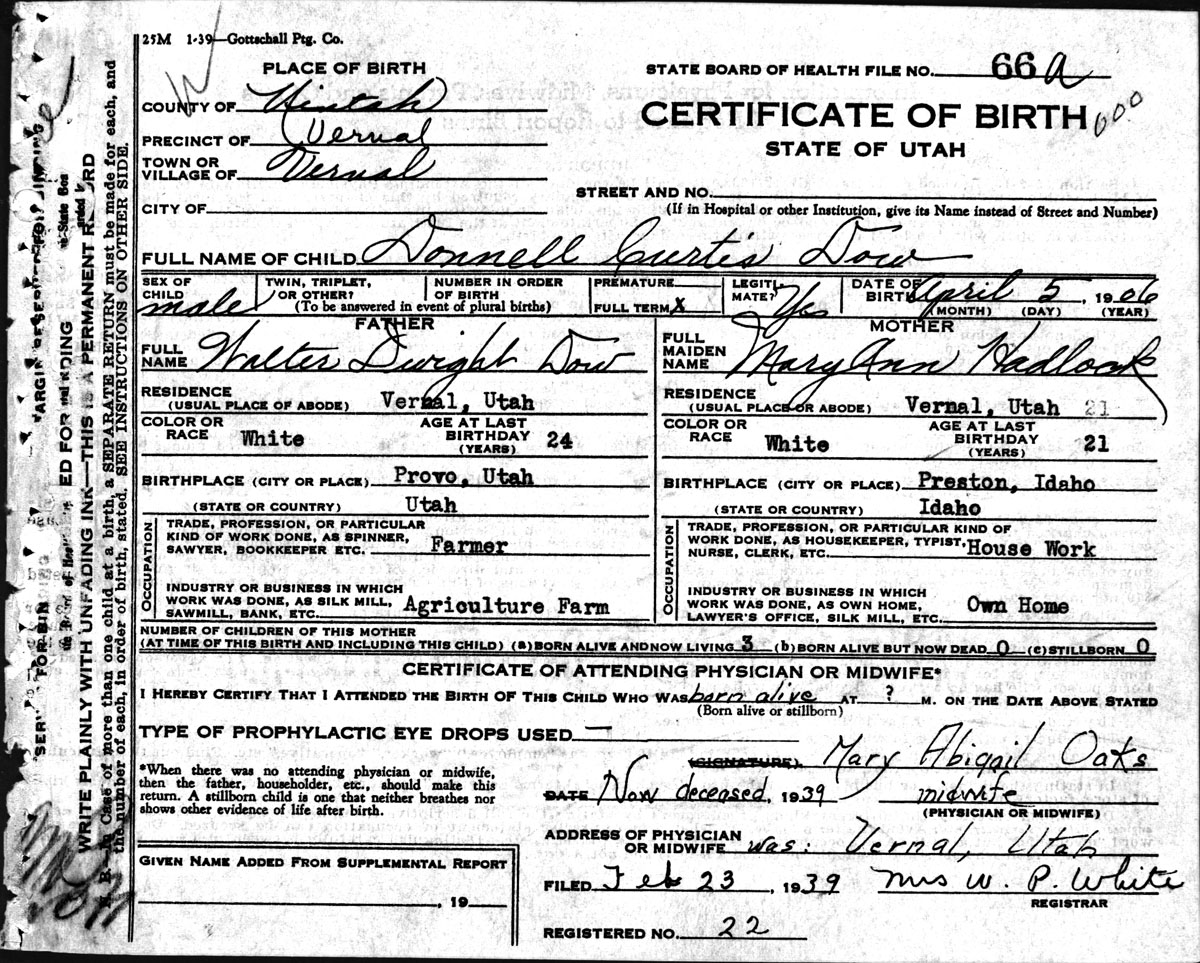 25M 1-39—Gottschall Ptg. Co.
PLACE OF BIRTH
STATE BOARD OF HEALTH FILE NO. 66 a
COUNTY OF Uintah
CERTIFICATE OF BIRTH 600
PRECINCT OF Vernal
STATE OF UTAH
TOWN OR
VILLAGE OF Vernal
STREET AND NO.
CITY OF
(If in Hospital or other Institution, give its Name instead of Street and Number)
FULL NAME OF CHILD Donnell Curtis Dow
SEX OF CHILD male
TWIN, TRIPLET, OR OTHER?
NUMBER IN ORDER OF BIRTH
(To be answered in event of plural births)
PREMATURE
FULL TERM X
LEGITI-MATE? Yes
DATE OF BIRTH April 5, 1906
(MONTH) (DAY) (YEAR)
FATHER
FULL NAME Walter Dwight Dow
RESIDENCE
(USUAL PLACE OF ABODE) Vernal, Utah
COLOR OR RACE White
AGE AT LAST BIRTHDAY 24
(YEARS)
BIRTHPLACE (CITY OR PLACE) Provo, Utah
(STATE OR COUNTRY) Utah
OCCUPATION
TRADE, PROFESSION, OR PARTICULAR
KIND OF WORK DONE, AS SPINNER,
SAWYER, BOOKKEEPER ETC. Farmer
INDUSTRY OR BUSINESS IN WHICH
WORK WAS DONE, AS SILK MILL,
SAWMILL, BANK, ETC. Agriculture Farm
MOTHER
FULL MAIDEN NAME Mary Ann Hadlock
RESIDENCE
(USUAL PLACE OR ABODE) Vernal, Utah 21
COLOR OR RACE White
AGE AT LAST BIRTHDAY 21
(YEARS)
BIRTHPLACE (CITY OR PLACE) Preston, Idaho
(STATE OR COUNTRY) Idaho
OCCUPATION
TRADE, PROFESSION, OR PARTICULAR KIND OF
WORK DONE, AS HOUSEKEEPER, TYPIST,
NURSE, CLERK, ETC. House Work
INDUSTRY OR BUSINESS IN WHICH
WORK WAS DONE, AS OWN HOME,
LAWYER'S OFFICE, SILK MILL, ETC. Own Home
NUMBER OF CHILDREN OF THIS MOTHER
(AT TIME OF THIS BIRTH AND INCLUDING THIS CHILD) (a) BORN ALIVE AND NOW LIVING 3 (b) BORN ALIVE BUT NOW DEAD 0 (c) STILLBORN 0
CERTIFICATE OF ATTENDING PHYSICIAN OR MIDWIFE*
I HEREBY CERTIFY THAT I ATTENDED THE BIRTH OF THIS CHILD WHO WAS born alive AT ? M. ON THE DATE ABOVE STATED
(Born alive or stillborn)
TYPE OF PROPHYLACTIC EYE DROPS USED —
(SIGNATURE) Mary Abigail Oaks
*When there was no attending physician or midwife,
then the father, householder, etc., should make this
return. A stillborn child is one that neither breathes nor
shows other evidence of life after birth.
DATE Now deceased, 1939 midwife
(PHYSICIAN OR MIDWIFE)
ADDRESS OF PHYSICIAN
OR MIDWIFE was: Vernal, Utah
GIVEN NAME ADDED FROM SUPPLEMENTAL REPORT
, 19
FILED Feb 23, 1939 Mrs W. P. White
REGISTRAR
REGISTERED NO. 22
WRITE PLAINLY WITH UNFADING INK—THIS IS A PERMANENT RECORD
N. B.—In Case of more than one child at a birth, a SEPARATE RETURN must be made for each, and
the number of each, in order of birth, stated. SEE INSTRUCTIONS ON OTHER SIDE.